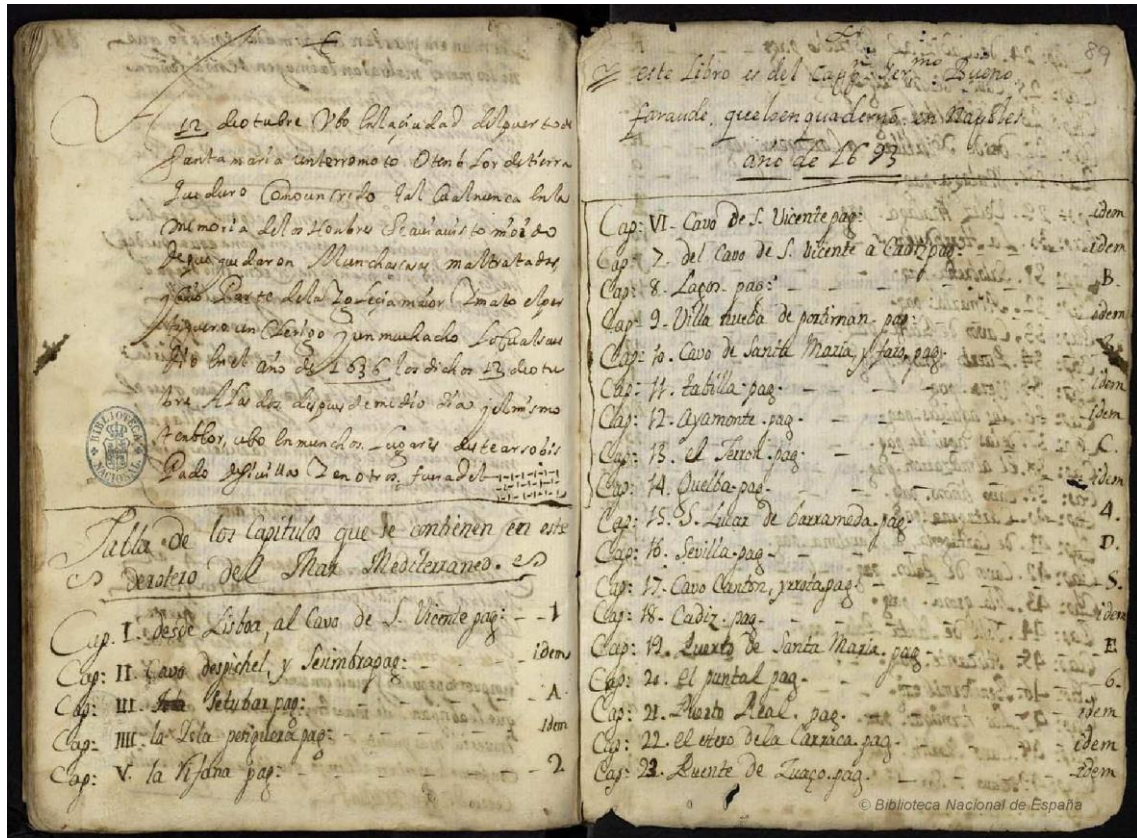 12 de otubre Vbo En la ciudad del puerto de
Santa maria un terromoto O tenblor de tierra
que duro Como un credo tal Cual nunca En la
memoria de los Honbres Se auia uisto
de que quedaron Munchas casas maltratadas
Parte de la Yglegia maior Y mato el per
tiguero un Clerigo Y un muchacho Lo Cual su
dio En el año de 1636 los dichos 12 de otu
bre A las dos despues de medio dia y el mismo
tenblor, ubo En munchos Lugares deste arsobis
Pado de seuilla Y en otros fuera del
Tabla de los Capitulos que se contienen en este
derotero del Mar Mediterraneo.
Cap: I. desde Lisboa, al Cavo de S. Vicente pag: - - 1
Cap: II. Cavo despichel, y Serimbra pag: - - idem
Cap: III. Setubar pag: - - A.
Cap: IIII. la Isla periguera pag: - - idem
Cap: V. la pag: - - 2
89
este Libro es del Bueno
faraude, que lo enquaderno en
año de 1693
Cap: VI. Cavo de S. Vicente pag: - idem
Cap: 7. del Cavo de S. Vicente a Cadiz pag: - idem
Cap: 8. Lagos. pag: - B.
Cap: 9. Villa nueba de portiman. pag: - idem
Cap: 10. Cavo de Santa Maria, y faro, pag:
Cap: 11. tabilla. pag - idem
Cap: 12. Ayamonte. pag - idem
Cap: 13. el Terron. pag. - C.
Cap: 14. Guelba. pag. - idem
Cap: 15. S. Lucar de barrameda. pag: - 4.
Cap: 16. Sevilla. pag. - D.
Cap: 17. Cavo Canton, y rota pag - 5.
Cap: 18. Cadiz. pag. - idem
Cap: 19. Puerto de Santa Maria. pag - E
Cap: 20. el puntal pag. - 6.
Cap: 21. Puerto Real. pag. - idem
Cap: 22. el estero de la Carraca. pag. - idem
Cap: 23. Puente de Zuaço. pag. - idem
BIBLIOTECA NACIONAL
© Biblioteca Nacional de España